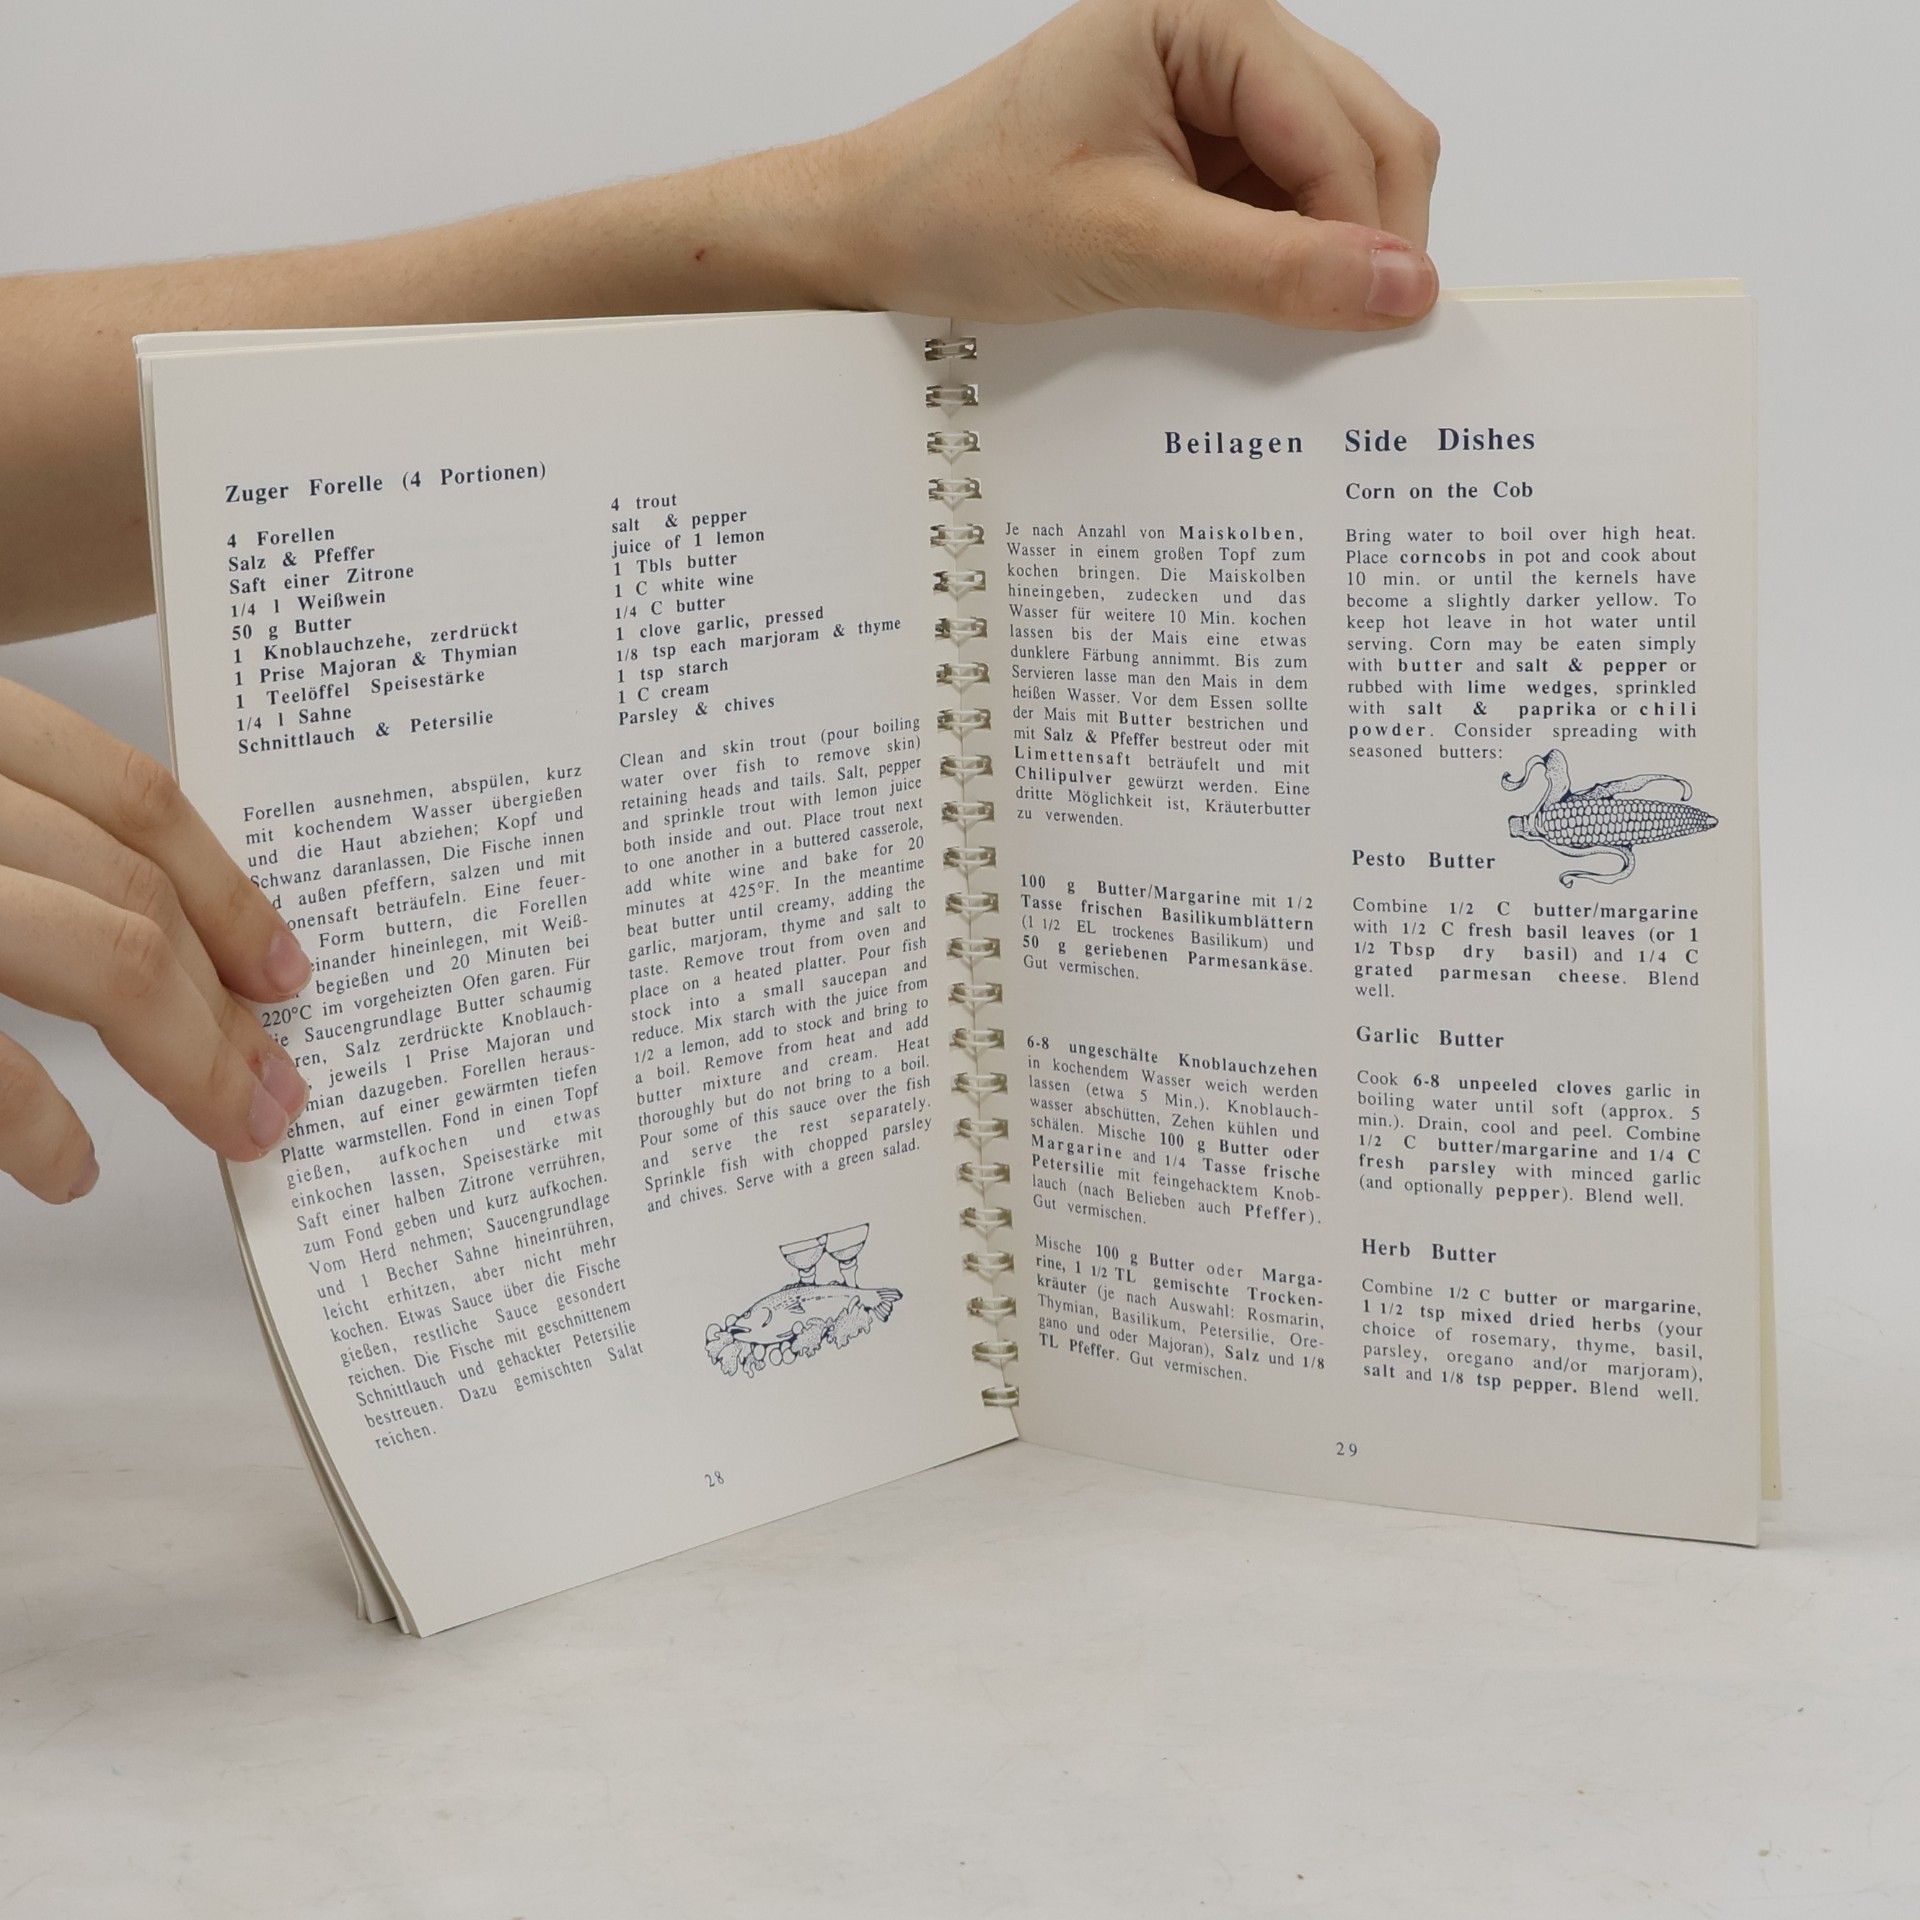 Zuger Forelle (4 Portionen)
4 Forellen
Salz & Pfeffer
Saft einer Zitrone
1/4 l Weißwein
50 g Butter
1 Knoblauchzehe, zerdrückt
1 Prise Majoran & Thymian
1 Teelöffel Speisestärke
1/4 l Sahne
Schnittlauch & Petersilie
Forellen ausnehmen, abspülen, kurz
mit kochendem Wasser übergießen
und die Haut abziehen; Kopf und
Schwanz daranlassen, Die Fische innen
außen pfeffern, salzen und mit
beträufeln. Eine feuer-
Form buttern, die Forellen
hineinlegen, mit Weiß-
begießen und 20 Minuten bei
220°C im vorgeheizten Ofen garen. Für
Saucengrundlage Butter schaumig
Salz zerdrückte Knoblauch-
jeweils 1 Prise Majoran und
dazugeben. Forellen heraus-
auf einer gewärmten tiefen
Platte warmstellen. Fond in einen Topf
gießen, aufkochen und etwas
einkochen lassen, Speisestärke mit
Saft einer halben Zitrone verrühren,
zum Fond geben und kurz aufkochen.
Vom Herd nehmen; Saucengrundlage
und 1 Becher Sahne hineinrühren,
leicht erhitzen, aber nicht mehr
kochen. Etwas Sauce über die Fische
gießen, restliche Sauce gesondert
reichen. Die Fische mit geschnittenem
Schnittlauch und gehackter Petersilie
bestreuen. Dazu gemischten Salat
reichen.
4 trout
salt & pepper
juice of 1 lemon
1 Tbls butter
1 C white wine
1/4 C butter
1 clove garlic, pressed
1/8 tsp each marjoram & thyme
1 tsp starch
1 C cream
Parsley & chives
Clean and skin trout (pour boiling
water over fish to remove skin)
retaining heads and tails. Salt, pepper
and sprinkle trout with lemon juice
both inside and out. Place trout next
to one another in a buttered casserole,
add white wine and bake for 20
minutes at 425°F. In the meantime
beat butter until creamy, adding the
garlic, marjoram, thyme and salt to
taste. Remove trout from oven and
place on a heated platter. Pour fish
stock into a small saucepan and
reduce. Mix starch with the juice from
1/2 a lemon, add to stock and bring to
a boil. Remove from heat and add
butter mixture and cream. Heat
thoroughly but do not bring to a boil.
Pour some of this sauce over the fish
and serve the rest separately.
Sprinkle fish with chopped parsley
and chives. Serve with a green salad.
28
Beilagen Side Dishes
Je nach Anzahl von Maiskolben,
Wasser in einem großen Topf zum
kochen bringen. Die Maiskolben
hineingeben, zudecken und das
Wasser für weitere 10 Min. kochen
lassen bis der Mais eine etwas
dunklere Färbung annimmt. Bis zum
Servieren lasse man den Mais in dem
heißen Wasser. Vor dem Essen sollte
der Mais mit Butter bestrichen und
mit Salz & Pfeffer bestreut oder mit
Limettensaft beträufelt und mit
Chilipulver gewürzt werden. Eine
dritte Möglichkeit ist, Kräuterbutter
zu verwenden.
100 g Butter/Margarine mit 1/2
Tasse frischen Basilikumblättern
(1 1/2 EL trockenes Basilikum) und
50 g geriebenen Parmesankäse.
Gut vermischen.
6-8 ungeschälte Knoblauchzehen
in kochendem Wasser weich werden
lassen (etwa 5 Min.). Knoblauch-
wasser abschütten, Zehen kühlen und
schälen. Mische 100 g Butter oder
Margarine and 1/4 Tasse frische
Petersilie mit feingehacktem Knob-
lauch (nach Belieben auch Pfeffer).
Gut vermischen.
Mische 100 g Butter oder Marga-
rine, 1 1/2 TL gemischte Trocken-
kräuter (je nach Auswahl: Rosmarin,
Thymian, Basilikum, Petersilie, Ore-
gano und oder Majoran), Salz und 1/8
TL Pfeffer. Gut vermischen.
Corn on the Cob
Bring water to boil over high heat.
Place corncobs in pot and cook about
10 min. or until the kernels have
become a slightly darker yellow. To
keep hot leave in hot water until
serving. Corn may be eaten simply
with butter and salt & pepper or
rubbed with lime wedges, sprinkled
with salt & paprika or chili
powder. Consider spreading with
seasoned butters:
Pesto Butter
Combine 1/2 C butter/margarine
with 1/2 C fresh basil leaves (or 1
1/2 Tbsp dry basil) and 1/4 C
grated parmesan cheese. Blend
well.
Garlic Butter
Cook 6-8 unpeeled cloves garlic in
boiling water until soft (approx. 5
min.). Drain, cool and peel. Combine
1/2 C butter/margarine and 1/4 C
fresh parsley with minced garlic
(and optionally pepper). Blend well.
Herb Butter
Combine 1/2 C butter or margarine,
1 1/2 tsp mixed dried herbs (your
choice of rosemary, thyme, basil,
parsley, oregano and/or marjoram),
salt and 1/8 tsp pepper. Blend well.
29